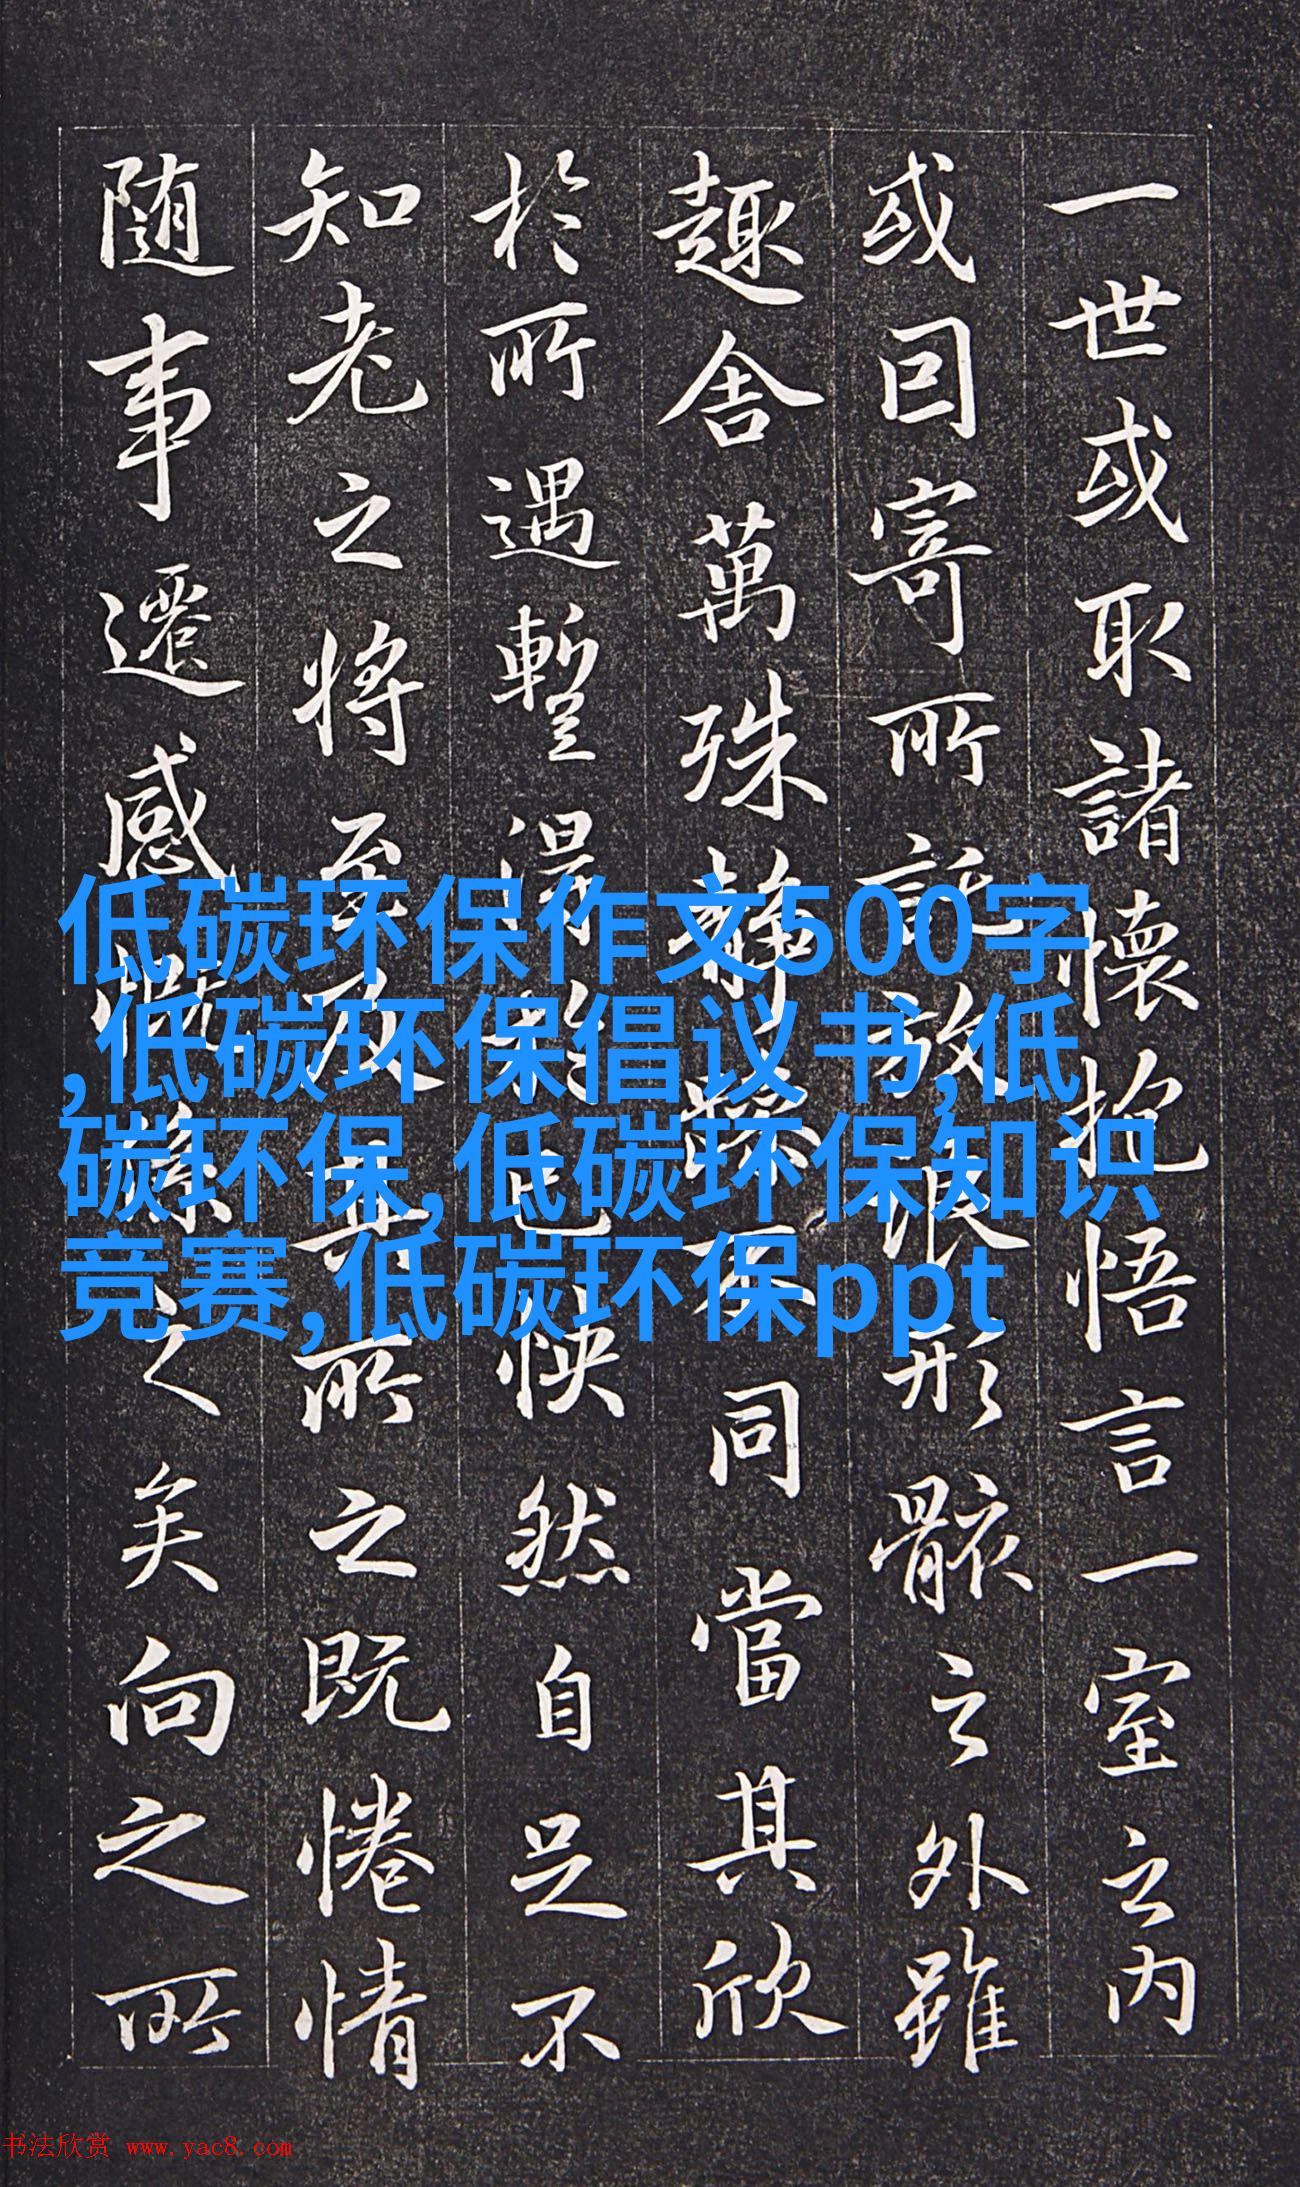 一世或取諸懷抱悟言一室之内
或囙寄所託放浪形骸之外雖
趣舍萬殊静躁不同當其欣
於所遇暫得於己怏然自足不
知老之將至及其所之既惓情
随事遷感慨係之矣向之所
低碳环保作文500字
,低碳环保倡议书,低
碳环保,低碳环保知识
竞赛,低碳环保ppt
书法欣赏 www.yac8.com